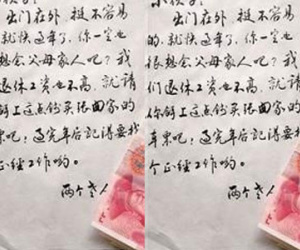 出门在外 挺不容易
的，就快过年了，你一定也
很想念父母家人吧？我
们退休工资也不高，就请
你上这点钱买张回家的
车票吧，过完年后记得要找
个正经工作哟。
两个老人
出门在外 挺不容易
的，就快过年了，你一定也
很想念父母家人吧？我
们退休工资也不高，就请
你上这点钱买张回家的
车票吧，过完年后记得要找
个正经工作哟。
两个老人